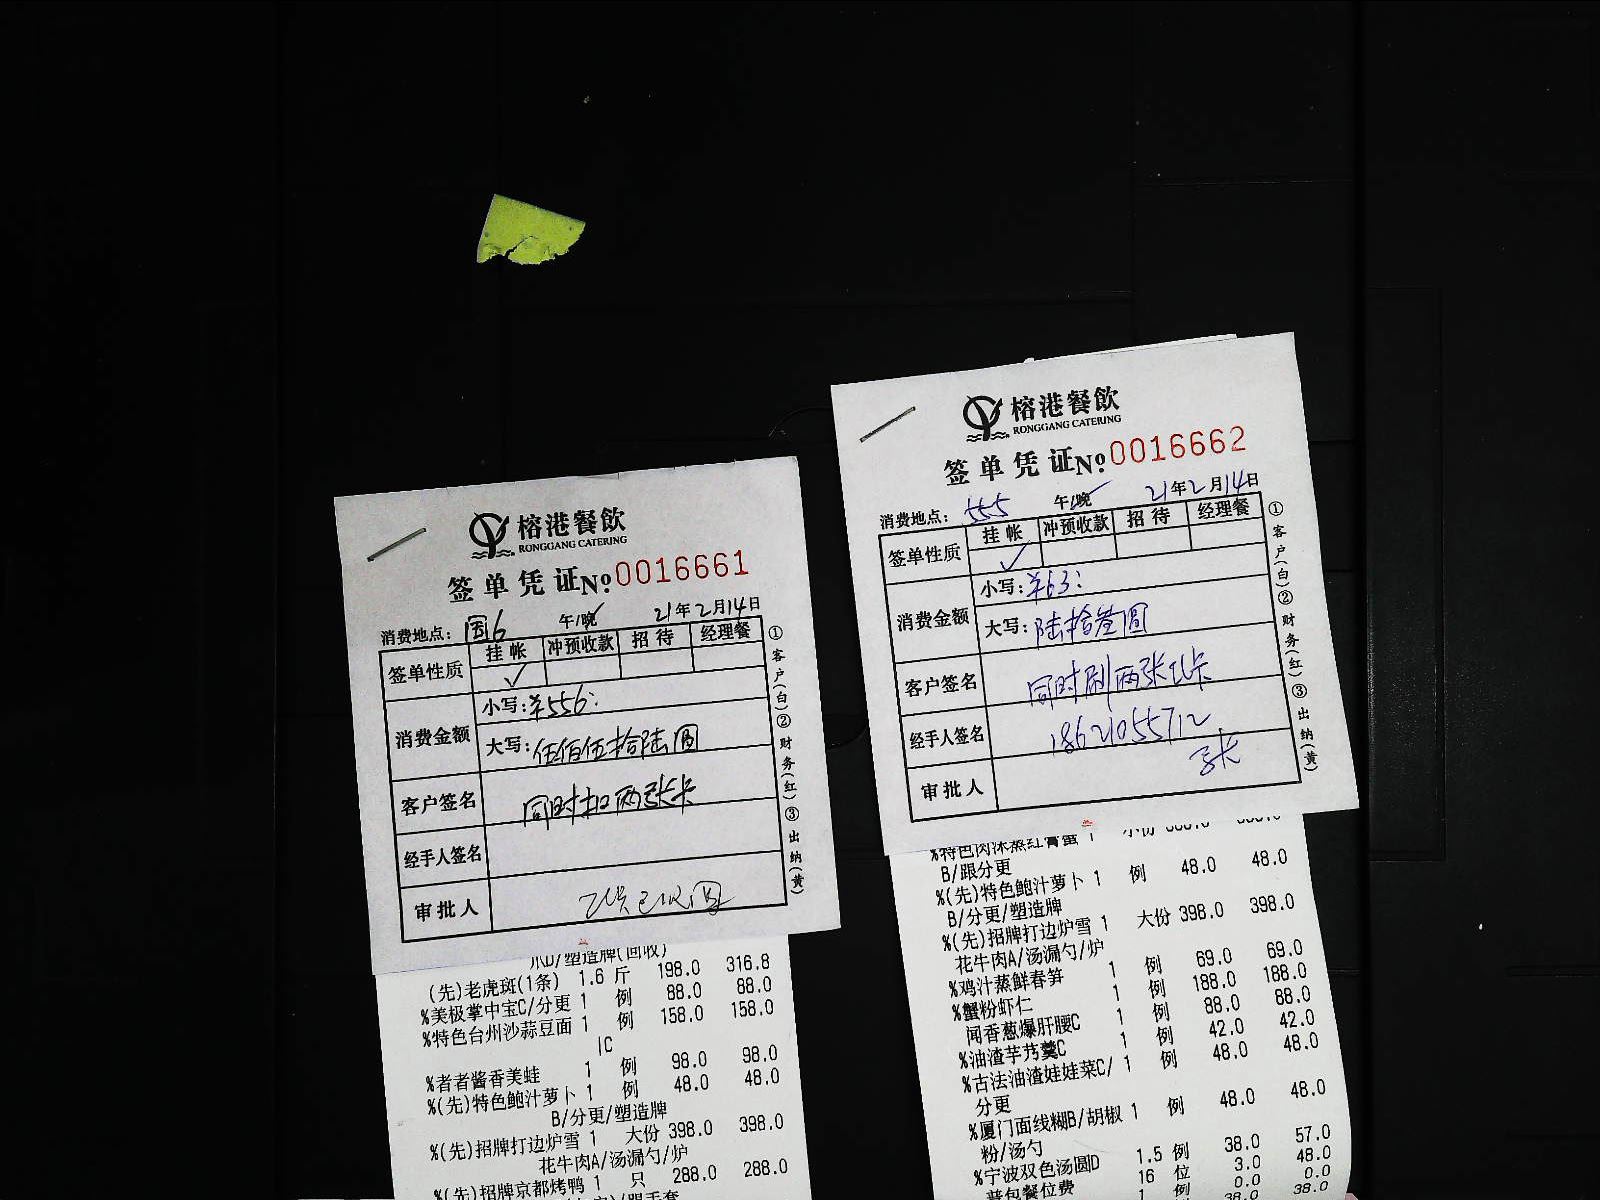 榕港餐飲
RONGGANG CATERING
签单凭证№0016661
消费地点: 国6 午/晚✓ 21年2月14日
签单性质 挂帐 冲预收款 招待 经理餐
✓
消费金额 小写:¥556:
大写: 伍佰伍拾陆圆
客户签名 同时扣两张卡
经手人签名
审批人
①客户(白)②财务(红)③出纳(黄)
爪D/塑造牌(回收)
(先)老虎斑(1条) 1.6 斤 198.0 316.8
%美极掌中宝C/分更 1 例 88.0 88.0
%特色台州沙蒜豆面 1 例 158.0 158.0
|C
%者者酱香美蛙 1 例 98.0 98.0
%(先)特色鲍汁萝卜 1 例 48.0 48.0
B/分更/塑造牌
%(先)招牌打边炉雪 1 大份 398.0 398.0
花牛肉A/汤漏勺/炉
%(先)招牌京都烤鸭 1 只 288.0 288.0
榕港餐飲
RONGGANG CATERING
签单凭证№0016662
消费地点: 555 午/晚✓ 21年2月14日
签单性质 挂帐 冲预收款 招待 经理餐
✓
消费金额 小写:¥63:
大写: 陆拾叁圆
客户签名 同时刷两张卡
经手人签名 18621055712
审批人
①客户(白)②财务(红)③出纳(黄)
%特色肉沫蒸红膏蟹 1 小份
B/跟分更
%(先)特色鲍汁萝卜 1 例 48.0 48.0
B/分更/塑造牌
%(先)招牌打边炉雪 1 大份 398.0 398.0
花牛肉A/汤漏勺/炉
%鸡汁蒸鲜春笋 1 例 69.0 69.0
%蟹粉虾仁 1 例 188.0 188.0
闻香葱爆肝腰C 1 例 88.0 88.0
%油渣芋艿羹C 1 例 42.0 42.0
%古法油渣娃娃菜C/ 1 例 48.0 48.0
分更
%厦门面线糊B/胡椒 1 例 48.0 48.0
粉/汤勺
%宁波双色汤圆D 1.5 例 38.0 57.0
普包餐位费 16 位 3.0 48.0
1 例 0.0 0.0
38.0 38.0